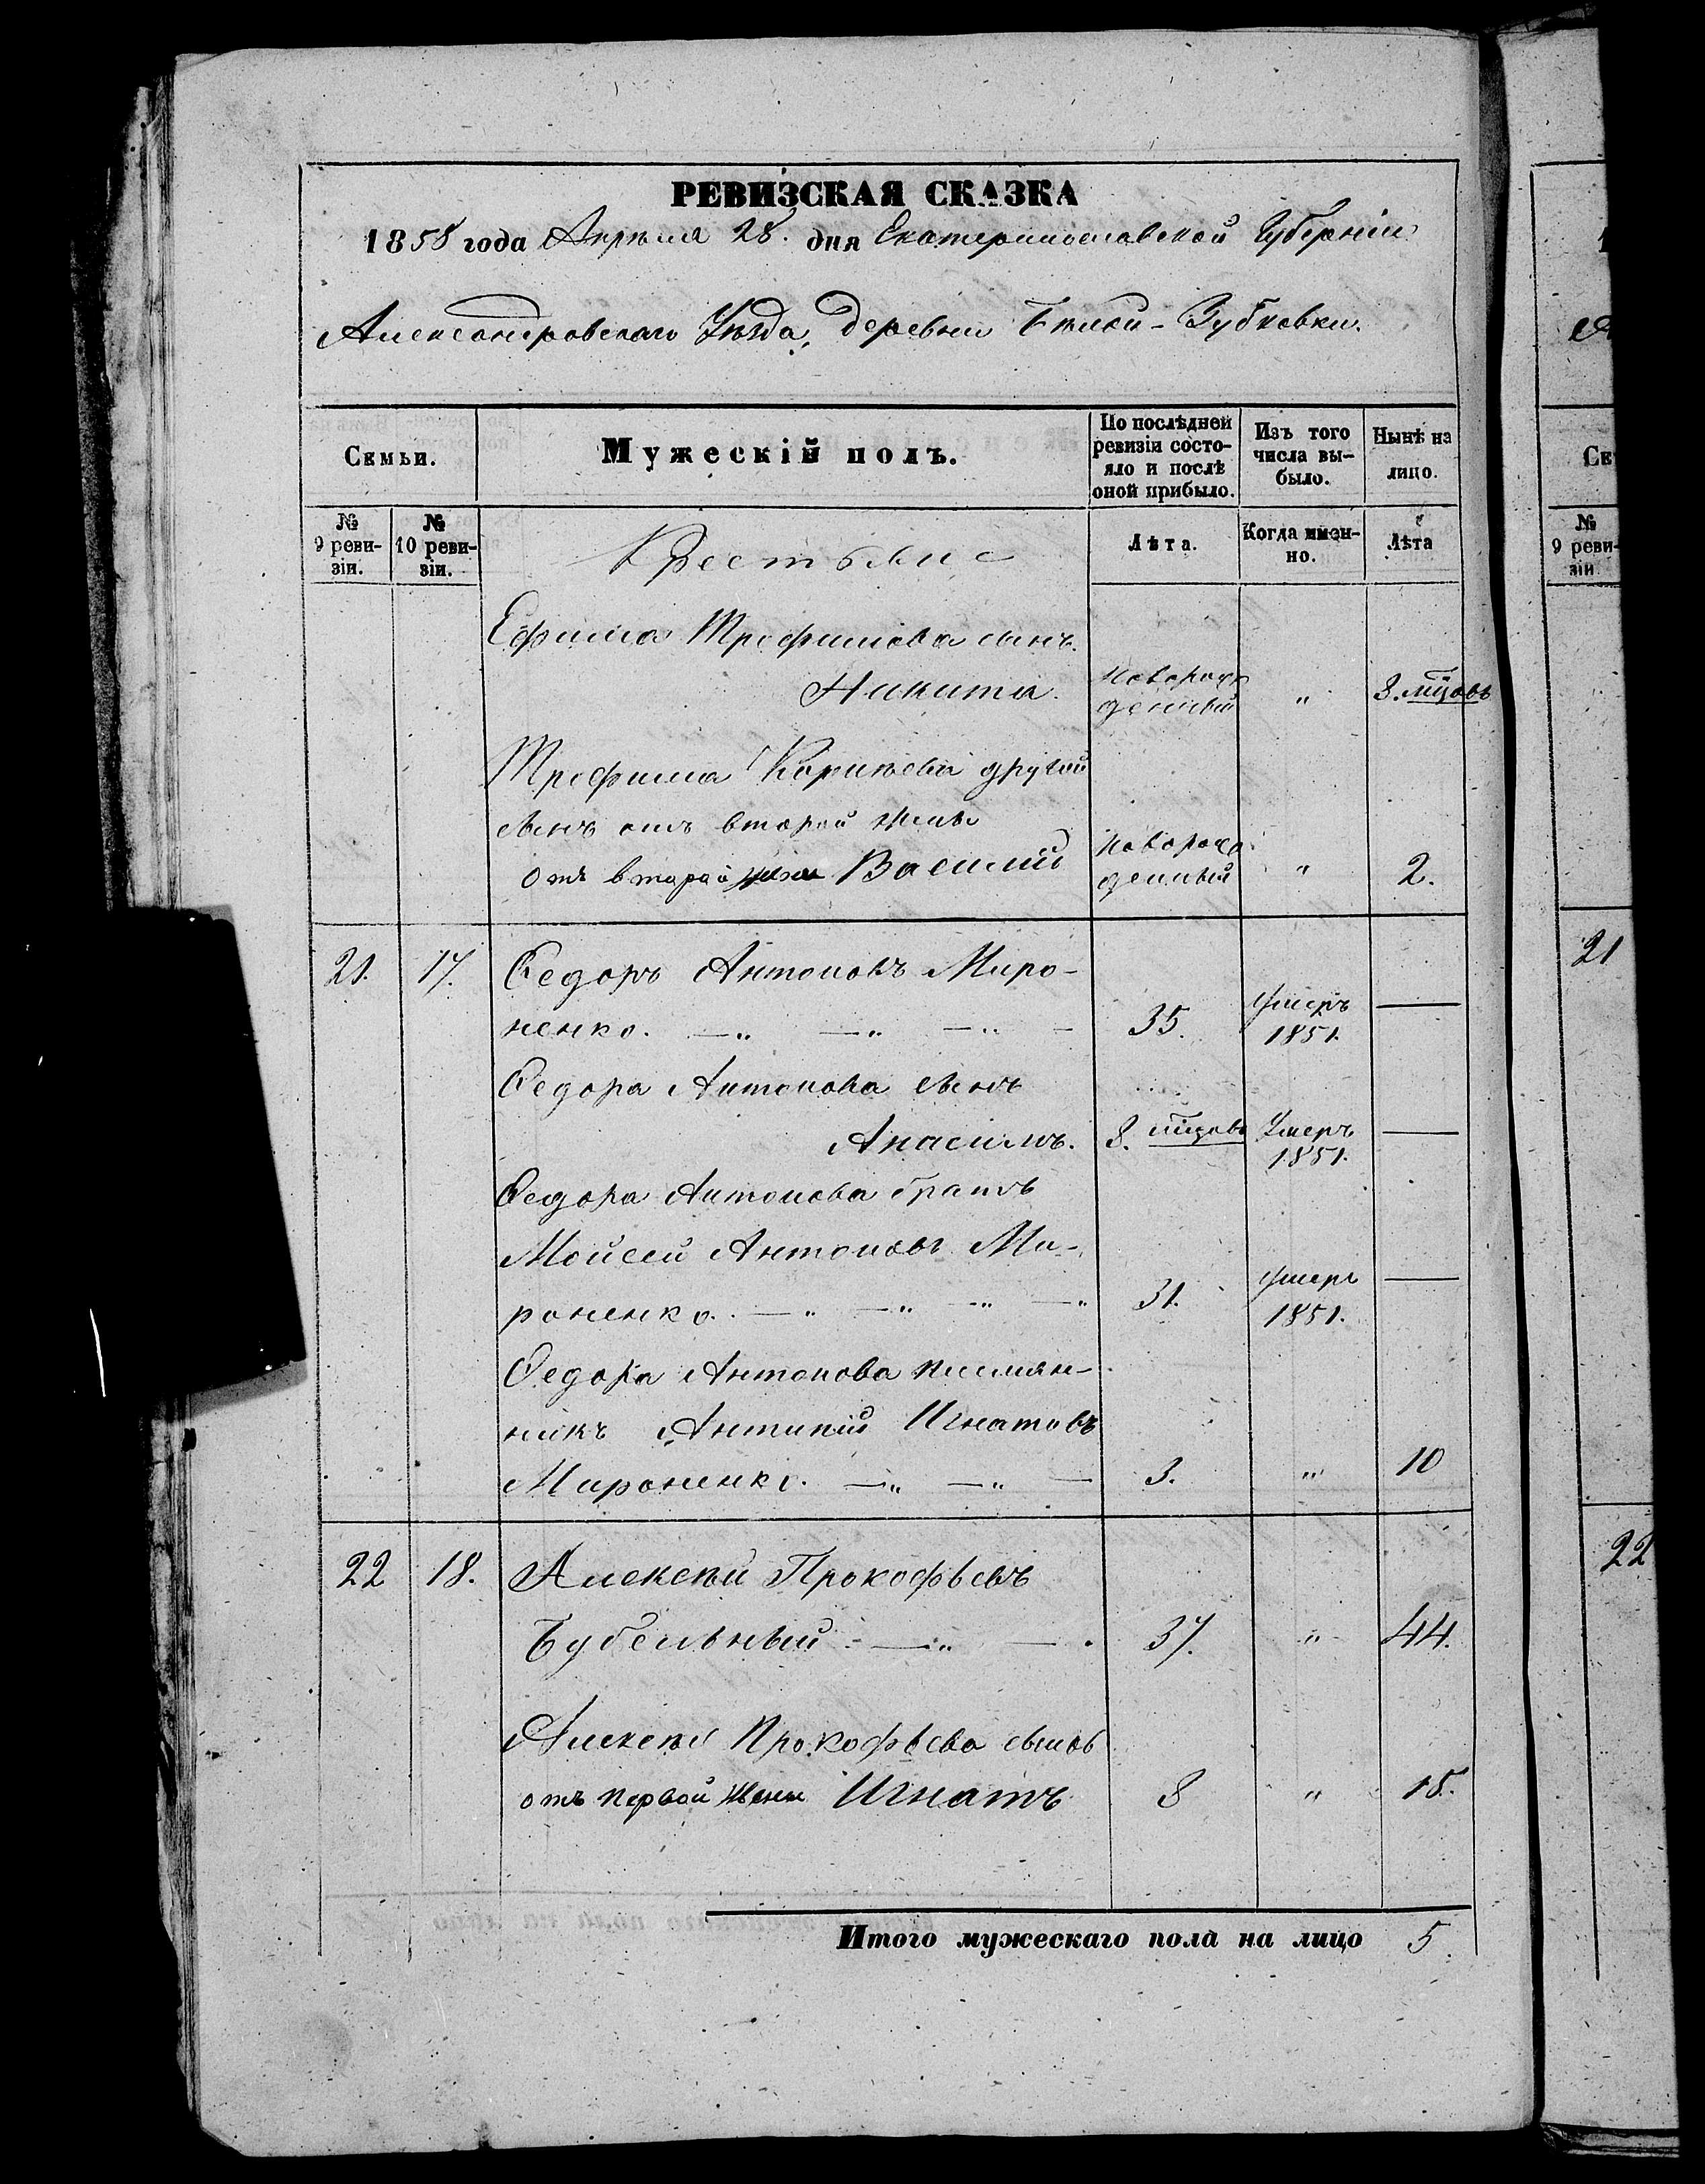 РЕВИЗСКАЯ СКАЗКА
1858 года Апрѣля 28. дня Екатеринославской Губерніи
Александровскаго Уѣзда, деревни Бѣлой-Зубковки.
Семьи.
Мужескій полъ.
По послѣдней ревизіи состо-яло и послѣ оной прибыло.
Изъ того числа вы-было.
Нынѣ на лицо.
№ 9 реви-зіи.
№ 10 реви-зіи.
Крестьяне
Лѣта.
Когда имен-но.
Лѣта
Ефима Трофимова сынъ
Никита. новорож денный " 3. мцовъ
Трофима Корнѣева другой
сынъ отъ второй жены
отъ второй жены Василій новорож денный " 2.
21. 17. Федоръ Антоновъ Миро-
ненко. —" —" —" — 35. Умеръ 1851. —
Федора Антонова сынъ
Анасимъ. 8. мцовъ Умеръ 1851. —
Федора Антонова братъ
Мойсей Антоновъ Ми-
роненко. —" —" —" —" 31. Умеръ 1851. —
Федора Антонова племян-
никъ Антипій Игнатовъ
Мироненко. —" —" — 3. " 10
22 18. Алексѣй Прокофьевъ
Бубельный. —" — . 37. " 44.
Алексѣя Прокофьева сынъ
отъ первой жены Игнатъ 8 " 15.
Итого мужескаго пола на лицо 5.
9 реви-
21
22